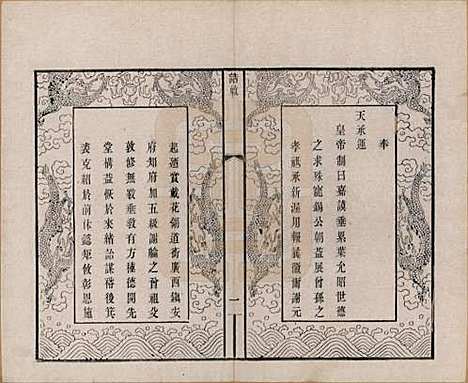 奉
天承運
皇帝制曰嘉謨垂累葉允昭世德
之求殊寵錫公朝益展曾孫之
孝祇承新渥用報貽徽爾謝元
誥敕
一
起迺賞戴花翎道銜廣西鎮安
府知府加五級謝崙之曾祖父
敦修無斁垂教有方種德開先
堂構益恢於來緒詒謀啓後箕
裘克紹於前休認矩攸彰恩施